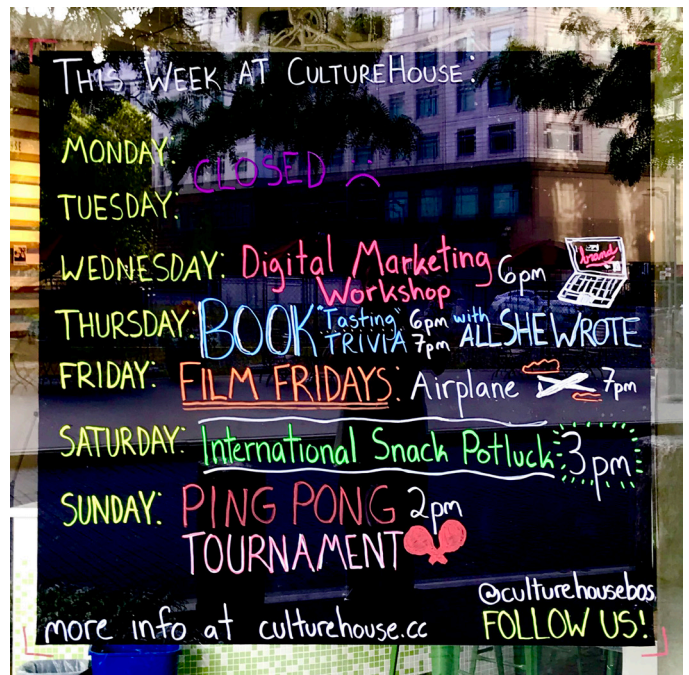 THIS WEEK AT CULTUREHOUSE:
MONDAY:
CLOSED :(
TUESDAY:
WEDNESDAY: Digital Marketing Workshop 6pm
brand
THURSDAY: BOOK "Tasting" 6pm with ALL SHE WROTE
TRIVIA 7pm
FRIDAY: FILM FRIDAYS: Airplane 7pm
SATURDAY: International Snack Potluck 3pm
SUNDAY: PING PONG 2pm
TOURNAMENT
@culturehousebos
more info at culturehouse.cc FOLLOW US!